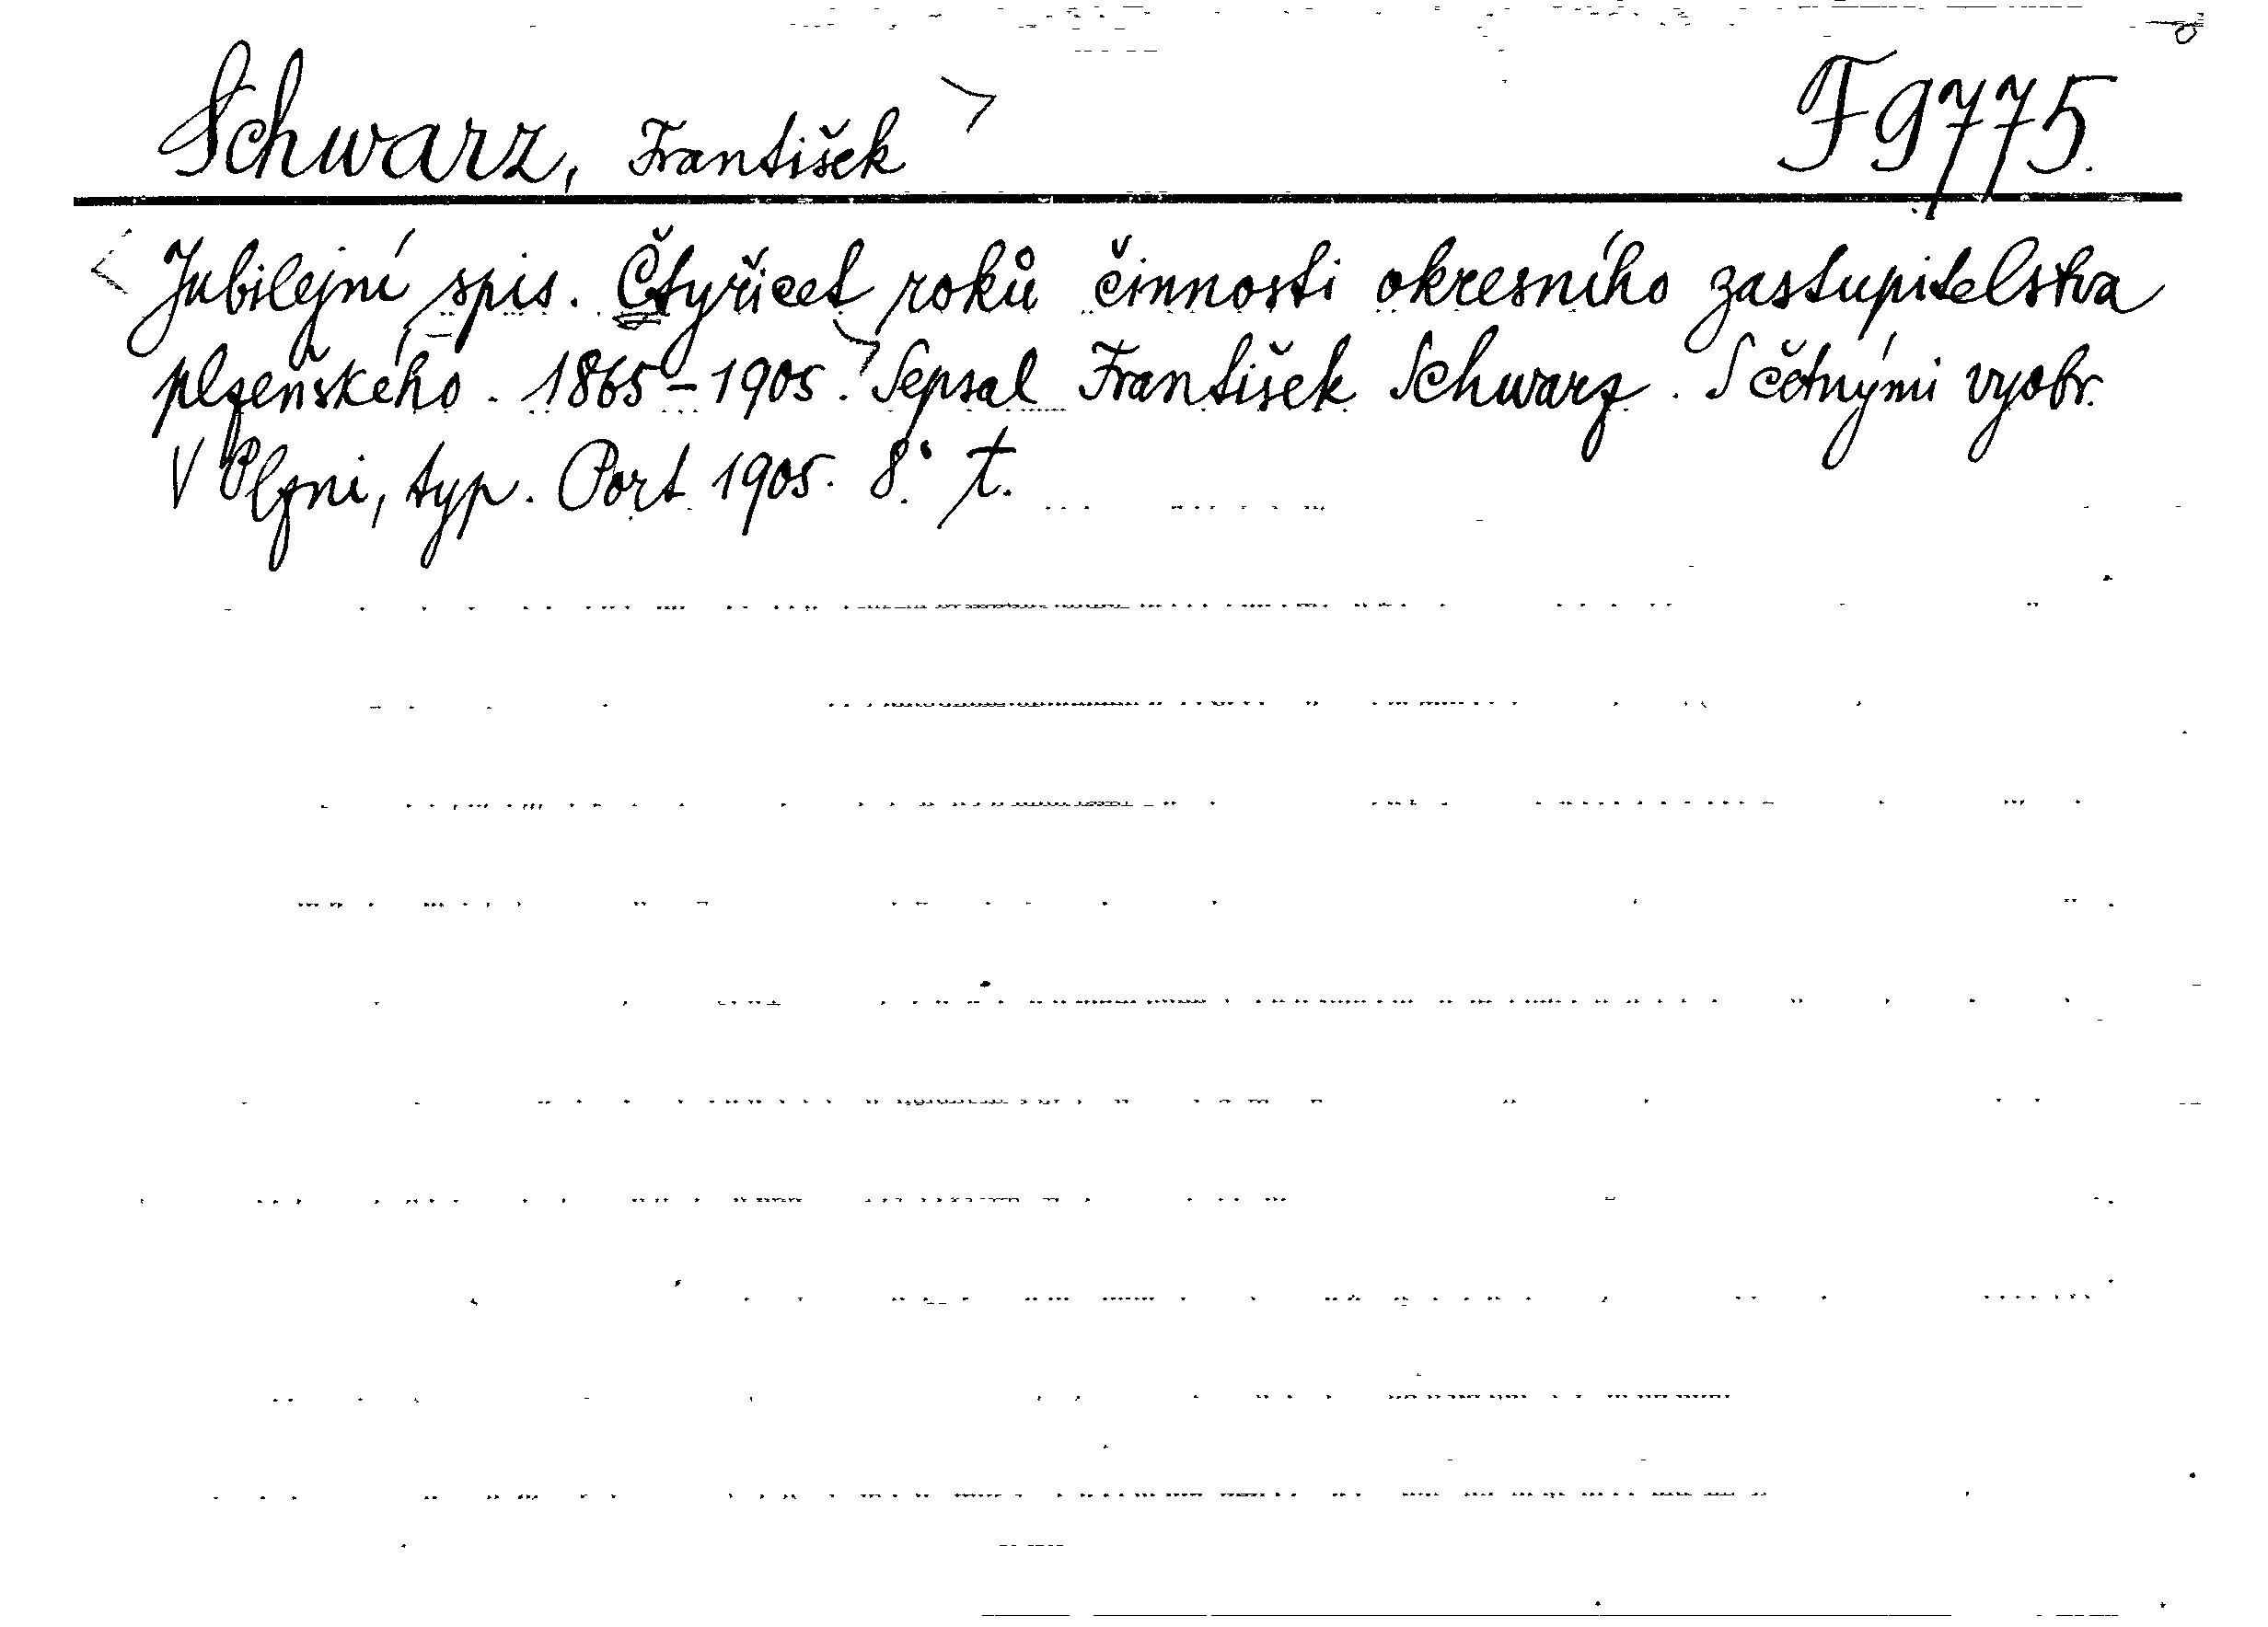 Schwarz, František F 9775.
Jubilejní spis. Čtyřicet roků činnosti okresního zastupitelstva
plzeňského. 1865-1905. Sepsal František Schwarz. S četnými vyobr.
V Plzni, typ. Port 1905. 8°. t.